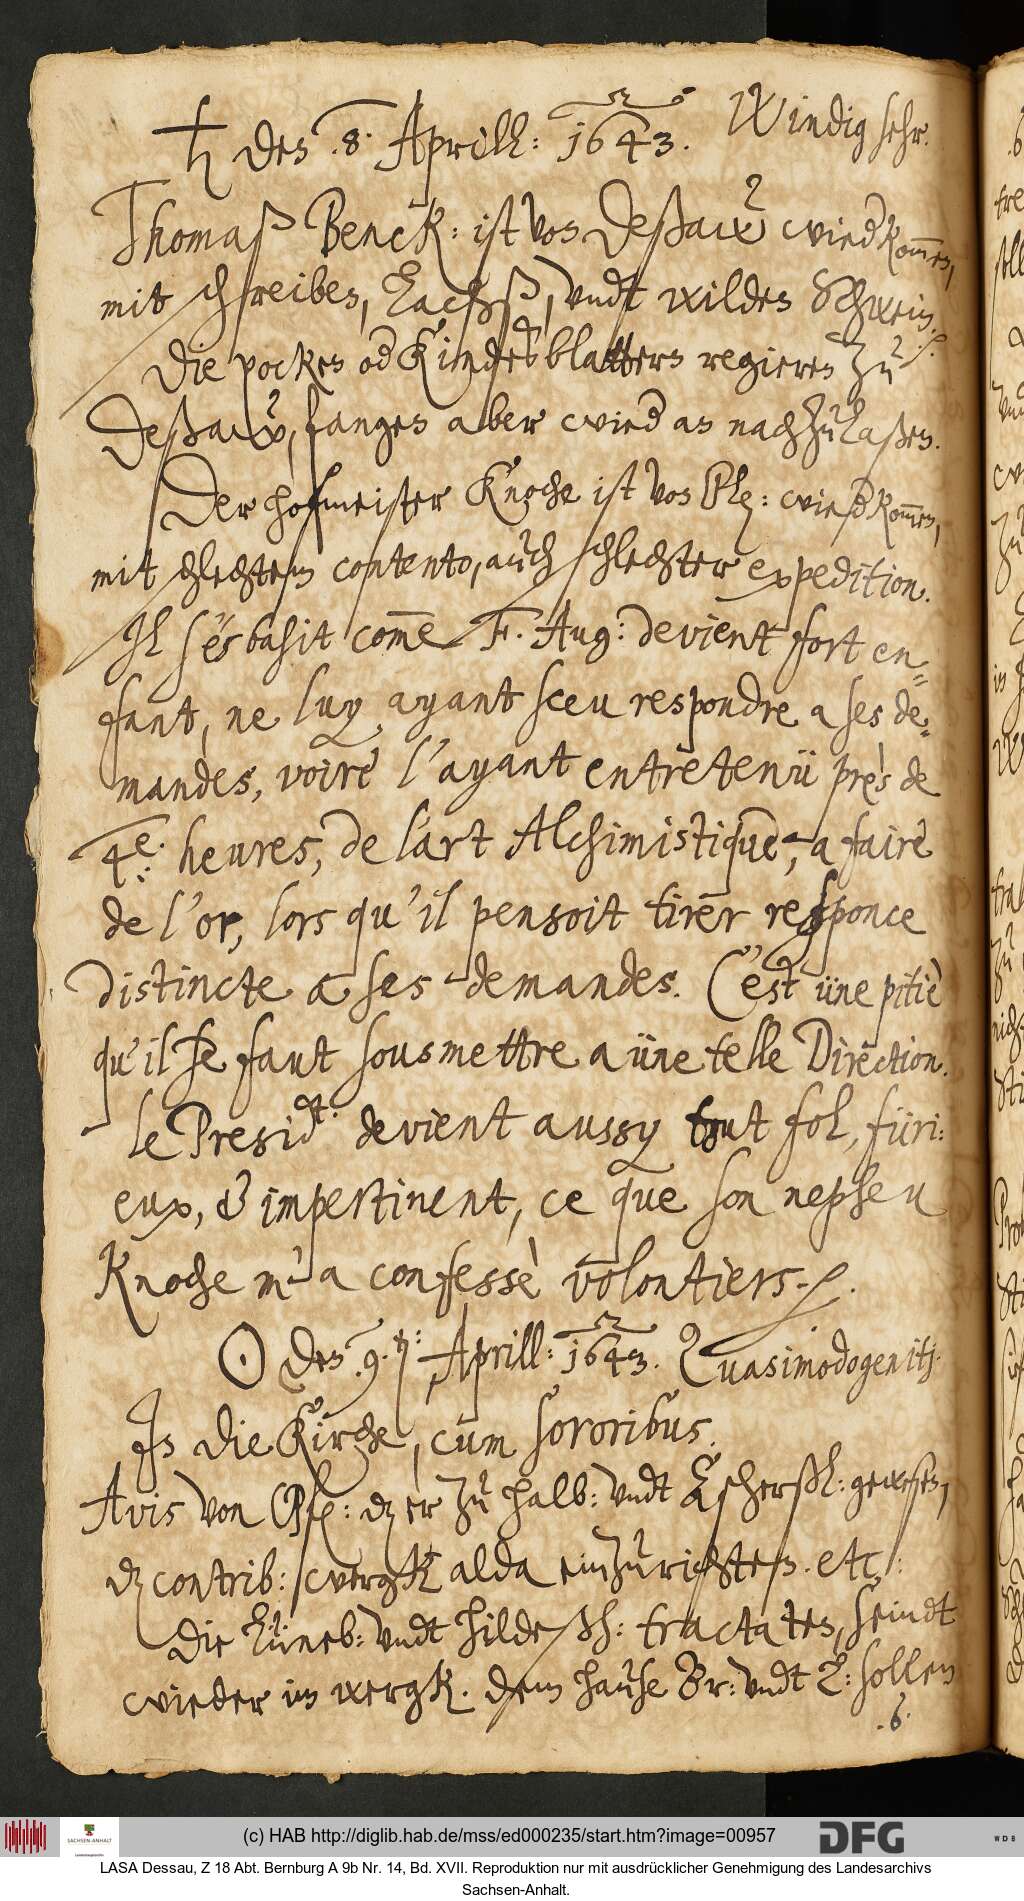 ♄ den .8. Aprill: 1643. Windig sehr.
Thomaß Benckh: ist von Deßaw wiederkom̅en,
mit schreiben, Lachß, vndt wilden Schwein.
Die pocken od Kindesblattern regieren zu
Deßaw, fangen aber wied an nachzulaßen.
Der hofmeister Knoche ist von wiedkom̅en,
mit schlechtem contento, auch schlechter expedition.
Il s'esbahit com̅e F. Aug: devient fort en=
fant, ne luy ayant sceu respondre a ses de=
mandes, voire l'ayant entretenü près de
4e. heures, de l'art Alchimistique, a faire
de l'or, lors qu'il pensoit tirer responce
distincte a ses demandes. C'est üne pitiè
qu'il se faut sousmettre a üne telle Direction.
le Presidt. devient aussy tout fol, füri:
eux, & impertinent, ce que son nepheu
Knoche m'a confessè volontiers.
⊙ den .9. ten: Aprill: 1643. Quasimodogenitj.
In die Kirche, cum sororibus.
Avis von er zu halb: vndt Aschersl: gewesen,
contrib: wergk alda einzurichten. etc:
Die Lüneb: vndt hildeßh: tractaten, seindt
wieder im wergk. dem hause Br: vndt L: sollen
.6.
(c) HAB http://diglib.hab.de/mss/ed000235/start.htm?image=00957
SACHSEN-ANHALT
DFG
WDB
LASA Dessau, Z 18 Abt. Bernburg A 9b Nr. 14, Bd. XVII. Reproduktion nur mit ausdrücklicher Genehmigung des Landesarchivs
Sachsen-Anhalt.